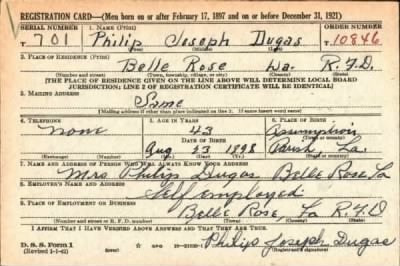 REGISTRATION CARD—(Men born on or after February 17, 1897 and on or before December 31, 1921)
SERIAL NUMBER 1. NAME (Print) ORDER NUMBER
T 701 Philip Joseph Dugas 10846
(First) (Middle) (Last)
2. PLACE OF RESIDENCE (Print)
Belle Rose La. R.F.D
(Number and street) (Town, township, village, or city) (County) (State)
[THE PLACE OF RESIDENCE GIVEN ON THE LINE ABOVE WILL DETERMINE LOCAL BOARD
JURISDICTION; LINE 2 OF REGISTRATION CERTIFICATE WILL BE IDENTICAL]
3. MAILING ADDRESS
Same
[Mailing address if other than place indicated on line 2. If same insert word same]
4. TELEPHONE 5. AGE IN YEARS 6. PLACE OF BIRTH
none 43 Assumption
DATE OF BIRTH
Aug 23 1898 Parish La.
(Exchange) (Number) (Mo.) (Day) (Yr.) (State or country)
7. NAME AND ADDRESS OF PERSON WHO WILL ALWAYS KNOW YOUR ADDRESS
Mrs Philip Dugas Belle Rose La
8. EMPLOYER'S NAME AND ADDRESS
Self employed
9. PLACE OF EMPLOYMENT OR BUSINESS
Belle Rose La R.F.D
(Number and street or R. F. D. number) (Town) (County) (State)
I AFFIRM THAT I HAVE VERIFIED ABOVE ANSWERS AND THAT THEY ARE TRUE.
D. S. S. Form 1
(Revised 1-1-42) (over) Philip Joseph Dugas
(Registrant's signature)